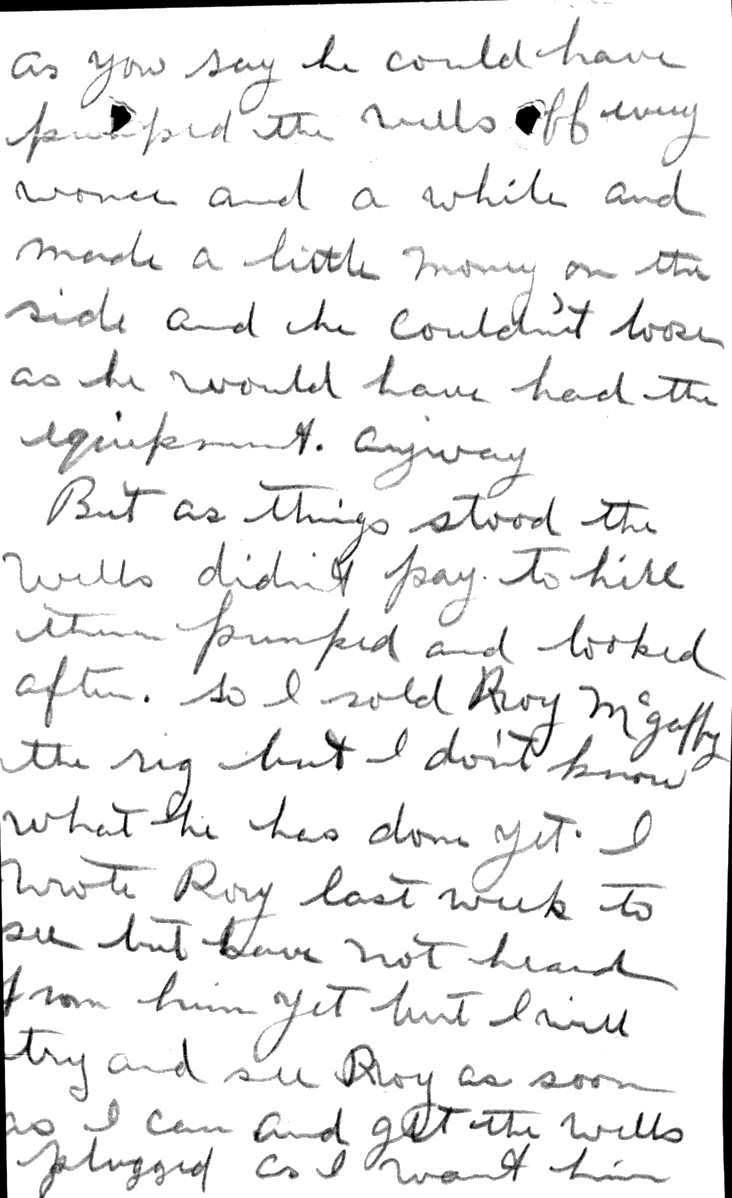 as you say he could have
pumped the wells off every
wonce and a while and
made a little money on the
side and he couldn't loose
as he would have had the
equipment. anyway
But as things stood the
wells didn't pay to hire
them pumped and looked
after. so I sold Rroy McGaffy
the rig but I don't know
what he has done yet. I
wrote Rory last week to
see but have not heard
from him yet but I will
try and see Rroy as soon
as I can and get the wells
plugged as I want him